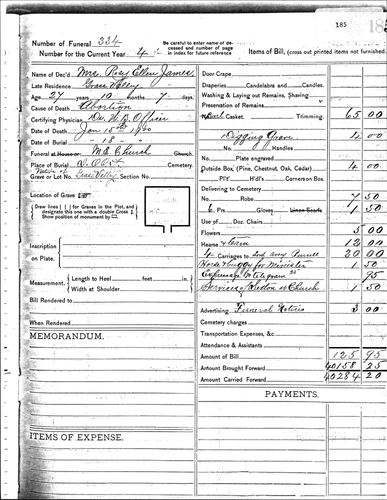 185
Number of Funeral 334
Number for the Current Year 4
Be careful to enter name of deceased and number of page in index for future reference
Items of Bill, (cross out printed items not furnished.
Name of Dec'd Mrs. Rose Ellen James
Late Residence Grass Valley
Age 27 years 10 months 7 days
Cause of Death Abortion
Certifying Physician Dr. W.
Date of Death Jan 15th 1900
Date of Burial " 18 "
Funeral at House or M.E. Church Church.
Place of Burial Cemetery.
Native of Grass Valley
Grave or Lot No. Section No.
Location of Grave
Draw lines for Graves in the Plot, and designate this one with a double Cross
Show position of monument by
Inscription on Plate.
Measurement, Length to Heel feet in.
Width at Shoulder "
Bill Rendered to
When Rendered
MEMORANDUM.
ITEMS OF EXPENSE.
Door Crape
Draperies Candelabra and Candles.
Washing & Laying out Remains, Shaving
Preservation of Remains
Casket. Trimming. 65 00
Digging Grave 4 00
No. Handles
Plate engraved
Outside Box, (Pine, Chestnut, Oak, Cedar) 4 00
PLY H'd's Corners on Box.
Delivering to Cemetery
Robe 7 50
6 Prs. Gloves Linen Scarfs 1 50
Use of Doz. Chairs
Flowers 5 00
Hearse & team 12 00
4 Carriages to 20 00
Horse & buggy for Minister 1 50
telegram 95
Services of Sexton at Church 1 50
Advertising Funeral Notices 3 00
Cemetery charges
Transportation Expenses, &c.
Attendance & Assistants
Amount of Bill 125 95
Amount Brought Forward 40158 25
Amount Carried Forward 40284 20
PAYMENTS.